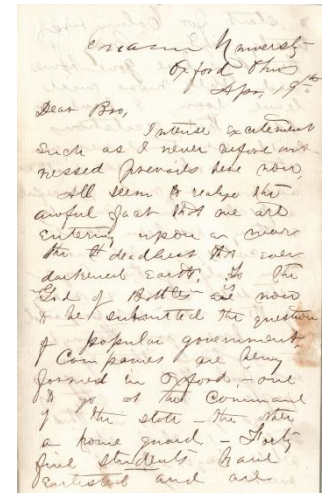 Miami University
Oxford Ohio
Apr. 19th
Dear Bro,
Intense excitement
such as I never before wit-
nessed prevails here now,
All seem to realize the
awful fact that we are
entering upon a war
the deadliest that ever
darkened Earth. To the
God of Battles is now
to be submitted the question
of popular government
Companies are being
formed in Oxford - one
to go at the Command
of the state - the other
a home guard - Forty
five students have
enlisted and are